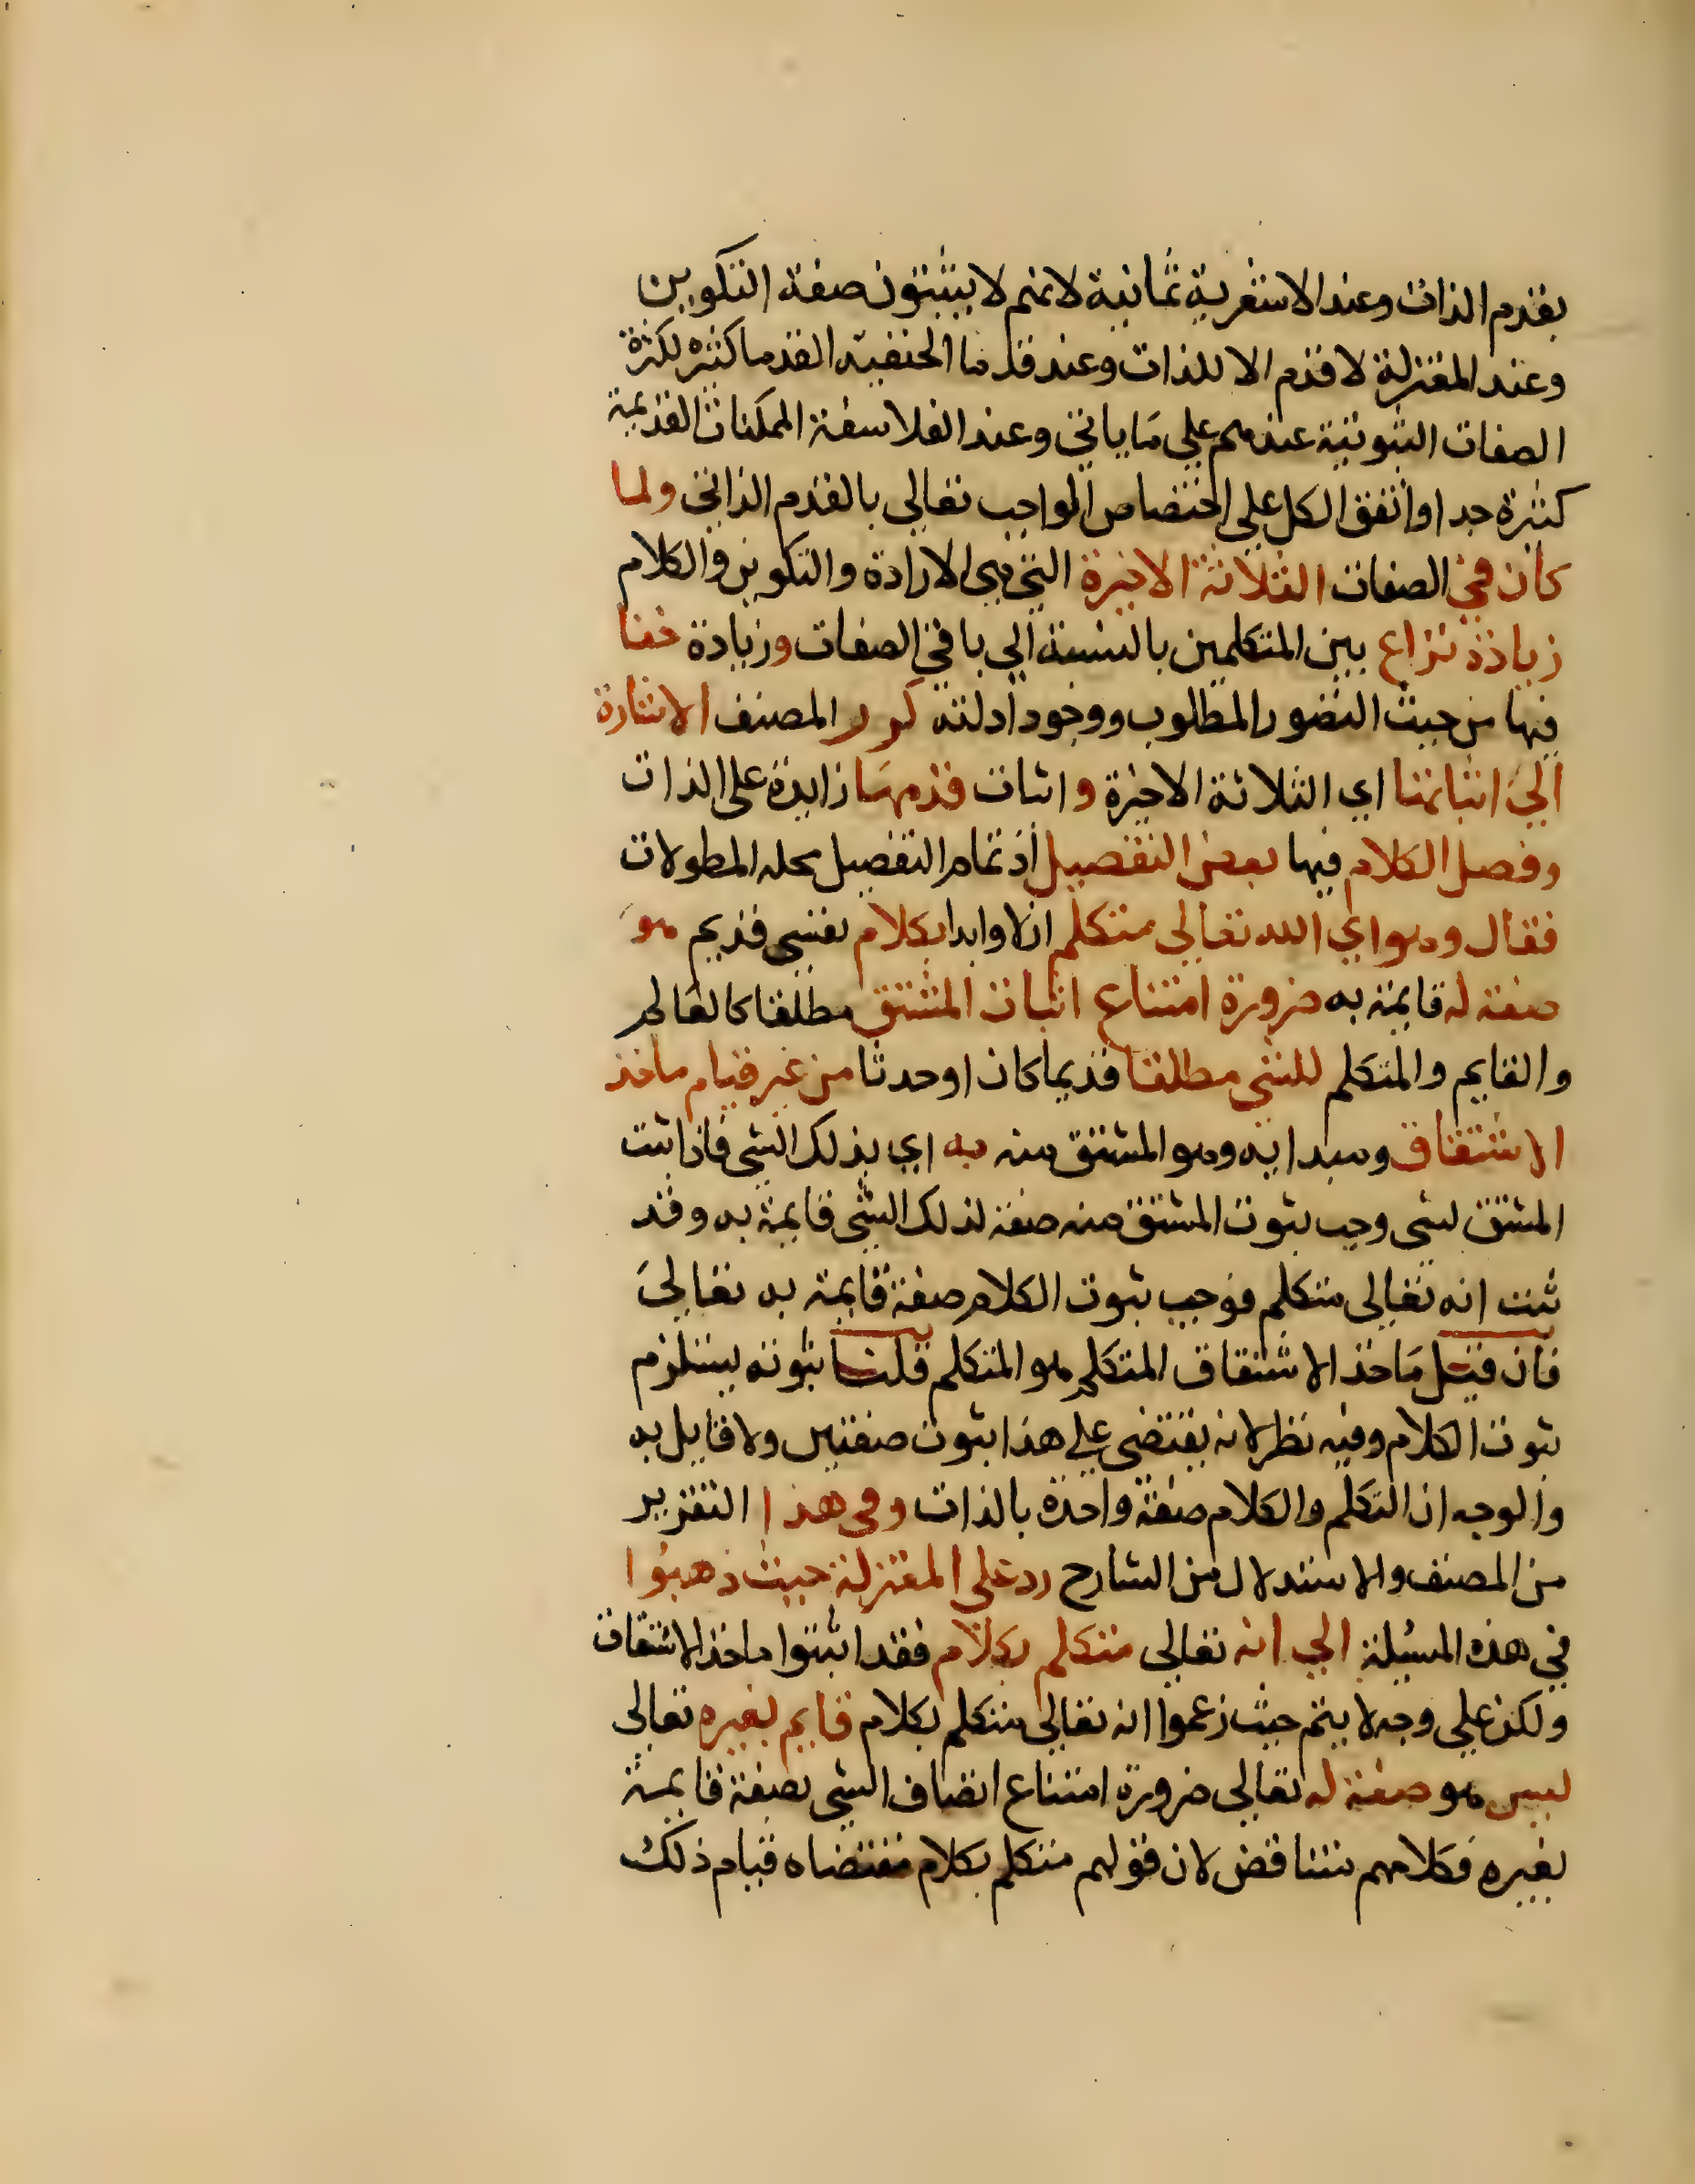 بقدم الذات وعند الاشعرية ثمانية لانهم لا يثبتون صفة التكوين
وعند المعتزلة لا قدم الا للذات وعند قدما الحنفيه القدما كثيره لكثرة
الصفات الثبوتية عندهم علي ما ياتي وعند الفلاسفة الممكنات القديمة
كثيرة جدا واتفق الكل علي اختصاص الواجب تعالي بالقدم الذاتي ولما
كان في الصفات الثلاثة الاخيرة التي هي الارادة والتكوين والكلام
زيادة نزاع بين المتكلمين بالنسبة الي باقي الصفات وزيادة خفا
فيها من حيث التصور المطلوب ووجود ادلته كرر المصنف الاشارة
الي اثباتها اي الثلاثة الاخيرة واثبات قدمها زايدة علي الذات
وفصل الكلام فيها بعض التفصيل اذ تمام التفصيل محله المطولات
فقال وهو اي الله تعالي متكلم ازلا وابدا بكلام نفسي قديم هو
صفة له قايمة به ضرورة امتناع اثبات المشتق مطلقا كالعالم
والقايم والمتكلم للشي مطلقا قديما كان او حدثا من غير قيام ماخذ
الاشتقاق ومبدايه وهو المشتق منه به اي بذلك الشي فاذا ثبت
المشتق لشي وجب ثبوت المشتق منه صفة لذلك الشي قايمة به وقد
ثبت انه تعالي متكلم فوجب ثبوت الكلام صفة قايمة به تعالي
فان قيل ماخذ الاشتقاق المتكلم هو التكلم قلنا ثبوته يستلزم
ثبوت الكلام وفيه نظر لانه يقتضي علي هذا ثبوت صفتين ولا قايل به
والوجه ان التكلم والكلام صفة واحدة بالذات وفي هذا التقرير
من المصنف والاستدلال من الشارح رد علي المعتزلة حيث ذهبوا
في هذه المسيلة الي انه تعالي متكلم بكلام فقد اثبتوا ماخذ الاشتقاق
ولكن علي وجه لا يتم حيث زعموا انه تعالي متكلم بكلام قايم بغيره تعالي
ليس هو صفة له تعالي ضرورة امتناع اتصاف الشي بصفة قايمة
بغيره فكلامهم متناقض لان قولهم متكلم بكلام مقتضاه قيام ذلك